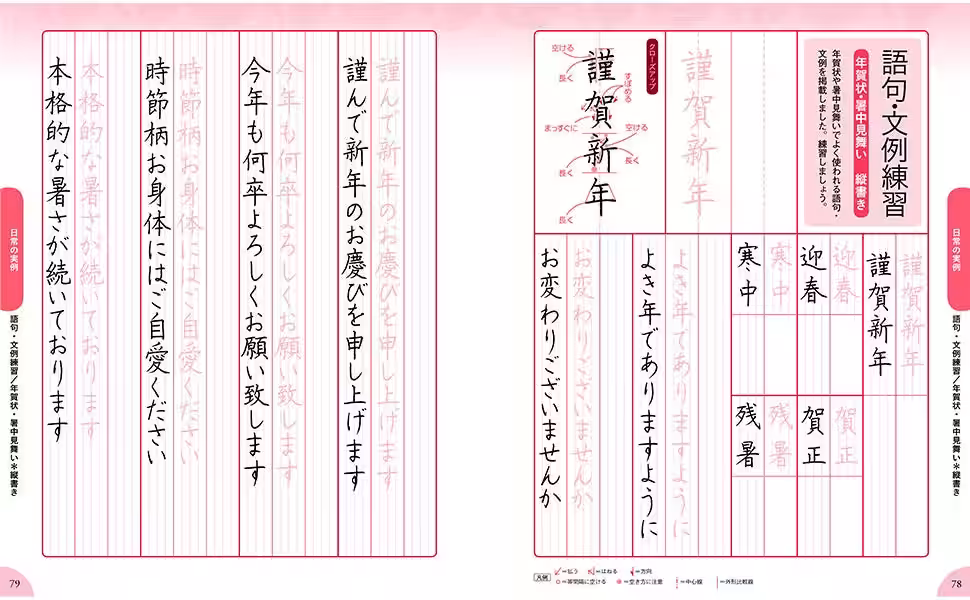 語句・文例練習
年賀状・暑中見舞い 縦書き
年賀状や暑中見舞いでよく使われる語句・
文例を掲載しました。練習しましょう。
謹賀新年
クローズアップ
謹賀新年
空ける
長く
すぼめる
まっすぐに
空ける
長く
長く
長く
謹賀新年
謹賀新年
迎春
迎春
賀正
賀正
寒中
寒中
残暑
残暑
よき年でありますように
よき年でありますように
お変わりございませんか
お変わりございませんか
凡例
=払う
=はねる
=方向
=等間隔に空ける
=空き方に注意
=中心線
=外形比較線
日常の実例
語句・文例練習/年賀状・暑中見舞い*縦書き
78
謹んで新年のお慶びを申し上げます
謹んで新年のお慶びを申し上げます
今年も何卒よろしくお願い致します
今年も何卒よろしくお願い致します
時節柄お身体にはご自愛ください
時節柄お身体にはご自愛ください
本格的な暑さが続いております
本格的な暑さが続いております
日常の実例
語句・文例練習/年賀状・暑中見舞い*縦書き
79